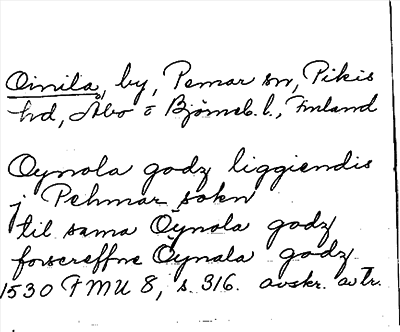 Oinila, by, Pemar sn, Pikis
hd, Åbo o Björneb. l., Finland
Oynola godz liggiendis
j Pehmar sokn
til sama Öynola godz
forscreffne Öynala godz
1530 FMU 8, s. 316. avskr. avtr.